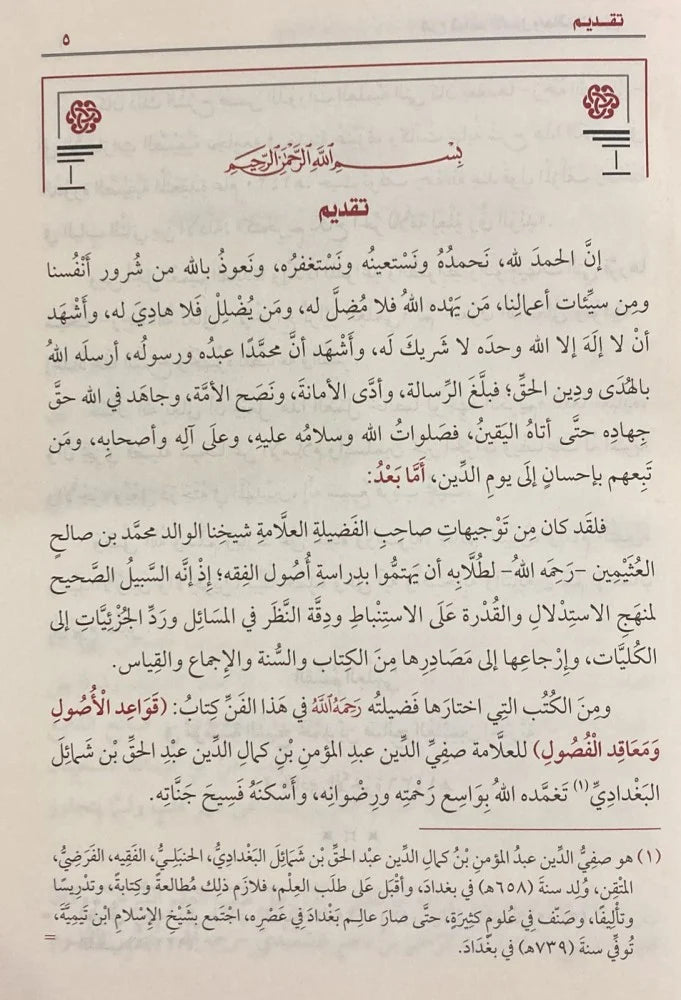 تقـديم
٥
بِسْــمِ اللَّهِ الرَّحْمَنِ الرَّحِيمِ
تقديم
إنَّ الحمدَ لله، نَحمدُهُ ونَسْتعينُه ونَسْتغفرُه، ونَعوذُ بالله من شُرور أَنْفُسنا
ومِن سيِّئات أعمالِنا، مَن يَهْده اللهُ فلا مُضِلَّ له، ومَن يُضْلِلْ فَلا هاديَ له، وأَشْهَد
أنْ لا إلَهَ إلا الله وحدَه لا شَريكَ لَه، وأَشْهَد أنَّ محمَّدًا عبدُه ورسولُه، أرسلَه اللهُ
بالهُدَى ودِينِ الحقِّ؛ فبلَّغَ الرِّسالة، وأدَّى الأمانةَ، ونَصَح الأمَّة، وجاهَد في الله حقَّ
جِهادِه حتَّى أتاهُ اليَقينُ، فصَلواتُ الله وسلامُه عليهِ، وعلَى آلِه وأصحابِه، ومَن
تَبِعهم بإحسانٍ إلَى يومِ الدِّين، أَمَّا بَعْدُ:
فلقَد كان مِن تَوْجيهاتِ صاحِبِ الفَضيلةِ العلَّامةِ شيخِنا الوالد محمَّد بن صالحٍ
العُثَيْمِين -رَحِمَه اللهُ- لطُلَّابِه أن يَهتمُّوا بدِراسةِ أُصُول الفقه؛ إذْ إنَّه السَّبيلُ الصَّحيح
لمنهَجِ الاستِدْلال والقُدْرة عَلَى الاستِنْباطِ ودِقَّة النَّظَر في المسَائل ورَدِّ الجُزْئِيَّاتِ إلى
الكُليَّات، وإرْجاعِها إلى مَصَادِرِها مِنَ الكِتاب والسُّنة والإجماع والقِياس.
ومِنَ الكُتُب التِي اختارَها فَضيلتُه رَحِمَهُ اللَّهُ في هَذا الفَنِّ كِتابُ: (قَوَاعِد الْأُصُولِ
وَمَعَاقِد الْفُصُولِ) للعلَّامة صفيِّ الدِّين عبدِ المؤمنِ بْنِ كمالِ الدِّين عبدِ الحقِّ بْن شَمائلَ
البَغْداديِّ(١) تَغمَّده اللهُ بِوَاسِع رَحْمتِه ورِضْوانِه، وأَسْكنَهُ فَسِيحَ جَنَّاتِه.
(١) هو صفِيُّ الدِّين عبدُ المؤمنِ بْنُ كمالِ الدِّين عبْد الحقِّ بْن شَمَائلَ البَغْداديُّ، الحنبَليُّ، الفَقِيه، الفَرَضِيُّ،
المتْقِن، وُلِد سنَةَ (٦٥٨هـ) في بغدادَ، وأقْبَل عَلَى طلَبِ العِلْم، فلازَم ذلِك مُطالعةً وكِتابةً، وتَدْرِيسًا
وتأْلِيفًا، وصَنّف في عُلومٍ كثِيرَةٍ، حتَّى صارَ عالِم بَغْدادَ في عَصْرِه، اجْتَمع بشَيْخِ الإِسْلام ابْن تَيمِيةَ،
تُوفِّي سنةَ (٧٣٩هـ) في بغْدَادَ.
=